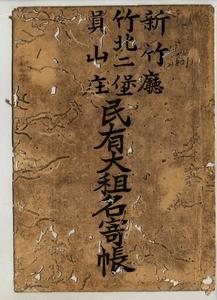 新竹廳
竹北二堡
員山庄
民有大租名寄帳